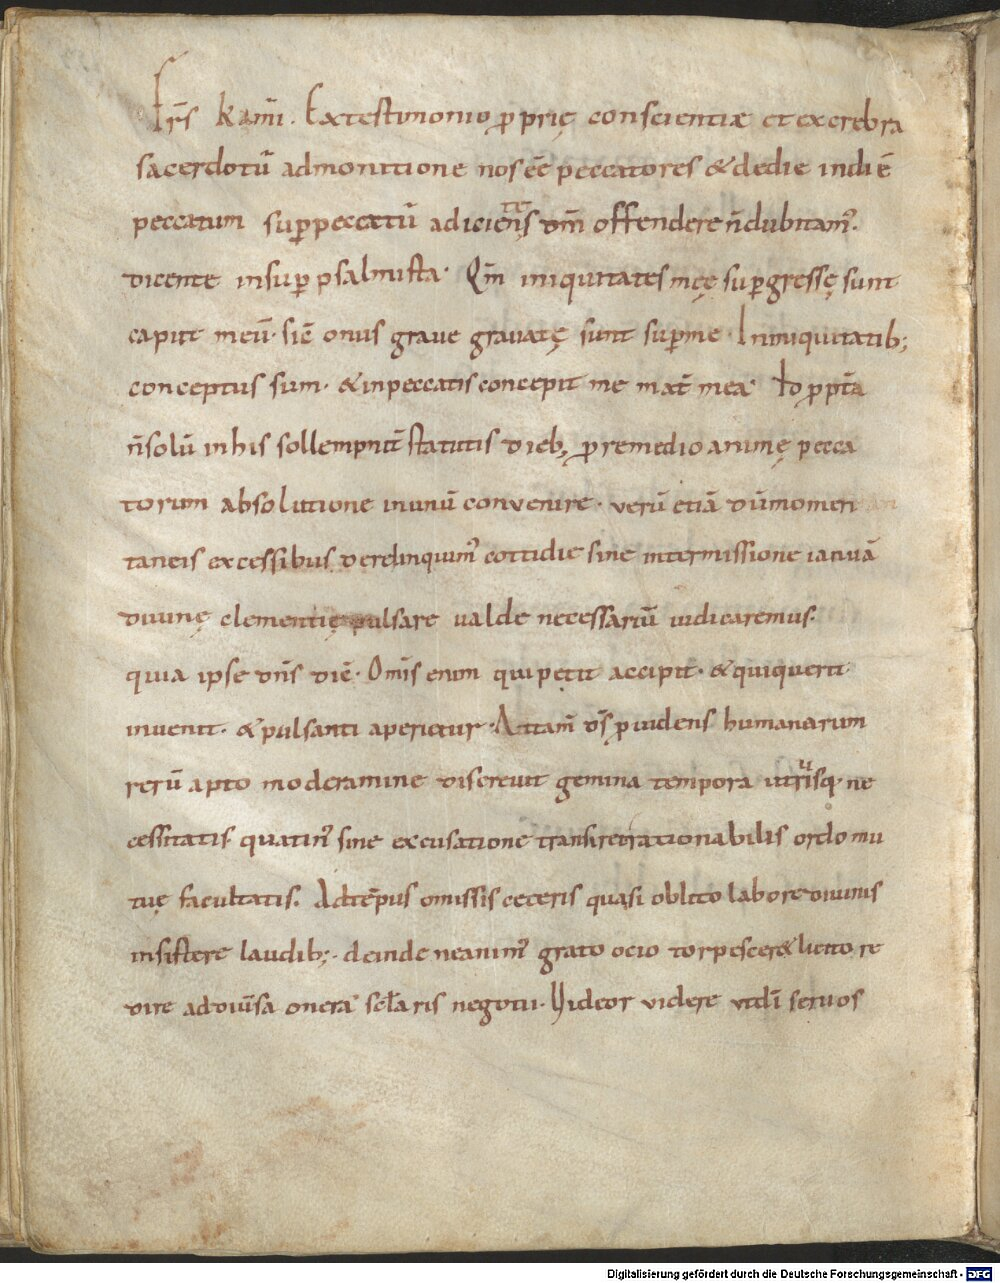 Frs̄ kar̄mi. Ex testimonio ꝓprię conscientiæ et ex crebra
sacerdotū admonitione nos eē peccatores & de die in diē
peccatum suꝑ peccatū adicientes dn̄m offendere n̄ dubitam᾽.
dicente insuꝑ psalmista. Qm̄ iniquitates meę suꝑgressę sunt
caput meū. sic̄ onus graue grauatę sunt suꝑ me. In iniquitatib;
conceptus sum. & in peccatis concepit me mat̄ mea. Io ꝓpt̄a
n̄ solū in his sollempnit̄ statutis dieb; ꝓ remedio animę pecca
torum absolutione in unū convenire. verū etiā dū momen
taneis excessibus derelinquim᾽ cottidie sine intermissione ianuā
diuinę clementię pulsare ualde necessariū iudicaremus.
quia ipse dn̄s dic̄. Om̄is enim qui petit accipit. & qui querit
inuenit. & pulsanti aperietur. Attam̄ ds̄ ꝓuidens humanarum
rerū apto moderamine discreuit gemina tempora utriusq. ne
cessitatis. quatin᾽ sine excusatione transiret rationabilis ordo mu
tuę facultatis. Ad tēpus omissis ceteris quasi oblito labore diuinis
insistere laudib;. deinde ne anim᾽ grato ocio torpesceret & licito re
dire ad diūsa onera sc̄laris negotii. Uideor videre ut dī seruos
Digitalisierung gefördert durch die Deutsche Forschungsgemeinschaft - DFG